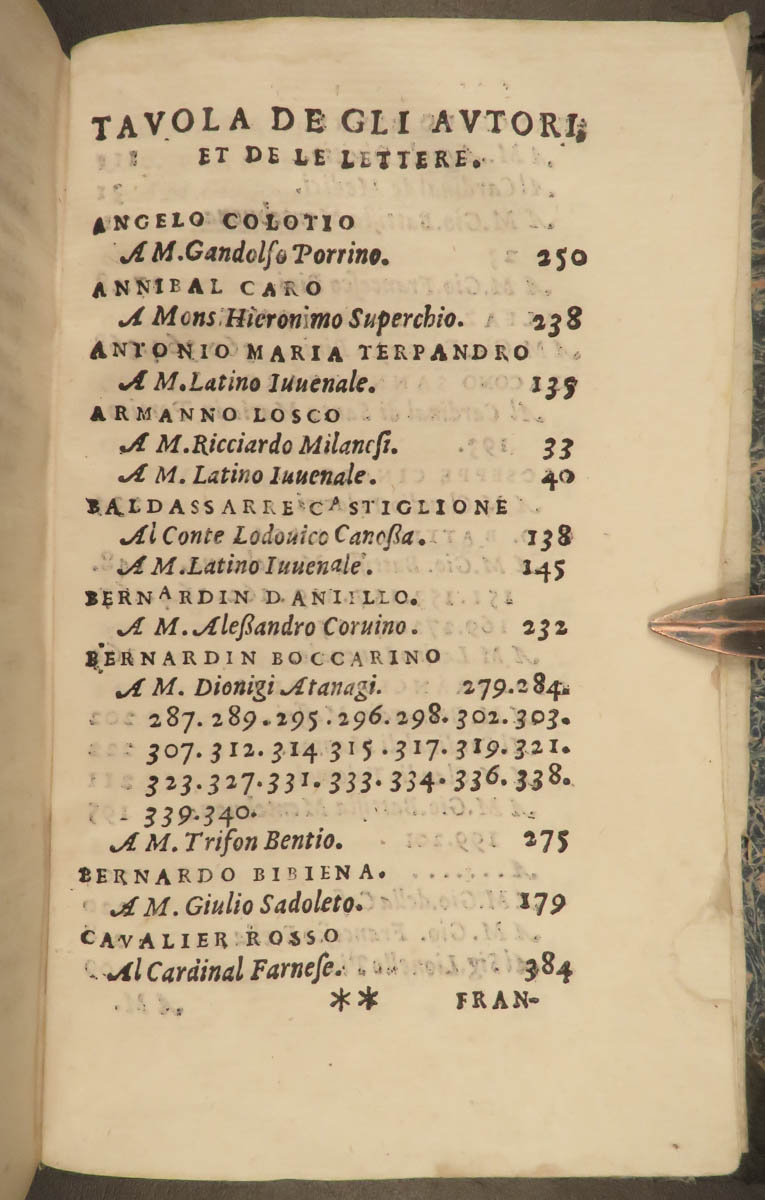 TAVOLA DE GLI AVTORI,
ET DE LE LETTERE.
ANGELO COLOTIO
A M. Gandolfo Porrino. 250
ANNIBAL CARO
A Mons. Hieronimo Superchio. 238
ANTONIO MARIA TERPANDRO
A M. Latino Iuuenale. 135
ARMANNO LOSCO
A M. Ricciardo Milanesi. 33
A M. Latino Iuuenale. 40
BALDASSARRE CASTIGLIONE
Al Conte Lodouico Canoßa. 138
A M. Latino Iuuenale. 145
BERNARDIN DANIILLO.
A M. Aleßandro Coruino. 232
BERNARDIN BOCCARINO
A M. Dionigi Atanagi. 279.284.
287.289.295.296.298.302.303.
307.312.314 315.317.319.321.
323.327.331.333.334.336.338.
339.340.
A M. Trifon Bentio. 275
BERNARDO BIBIENA.
A M. Giulio Sadoleto. 179
CAVALIER ROSSO
Al Cardinal Farnese. 384
** FRAN-